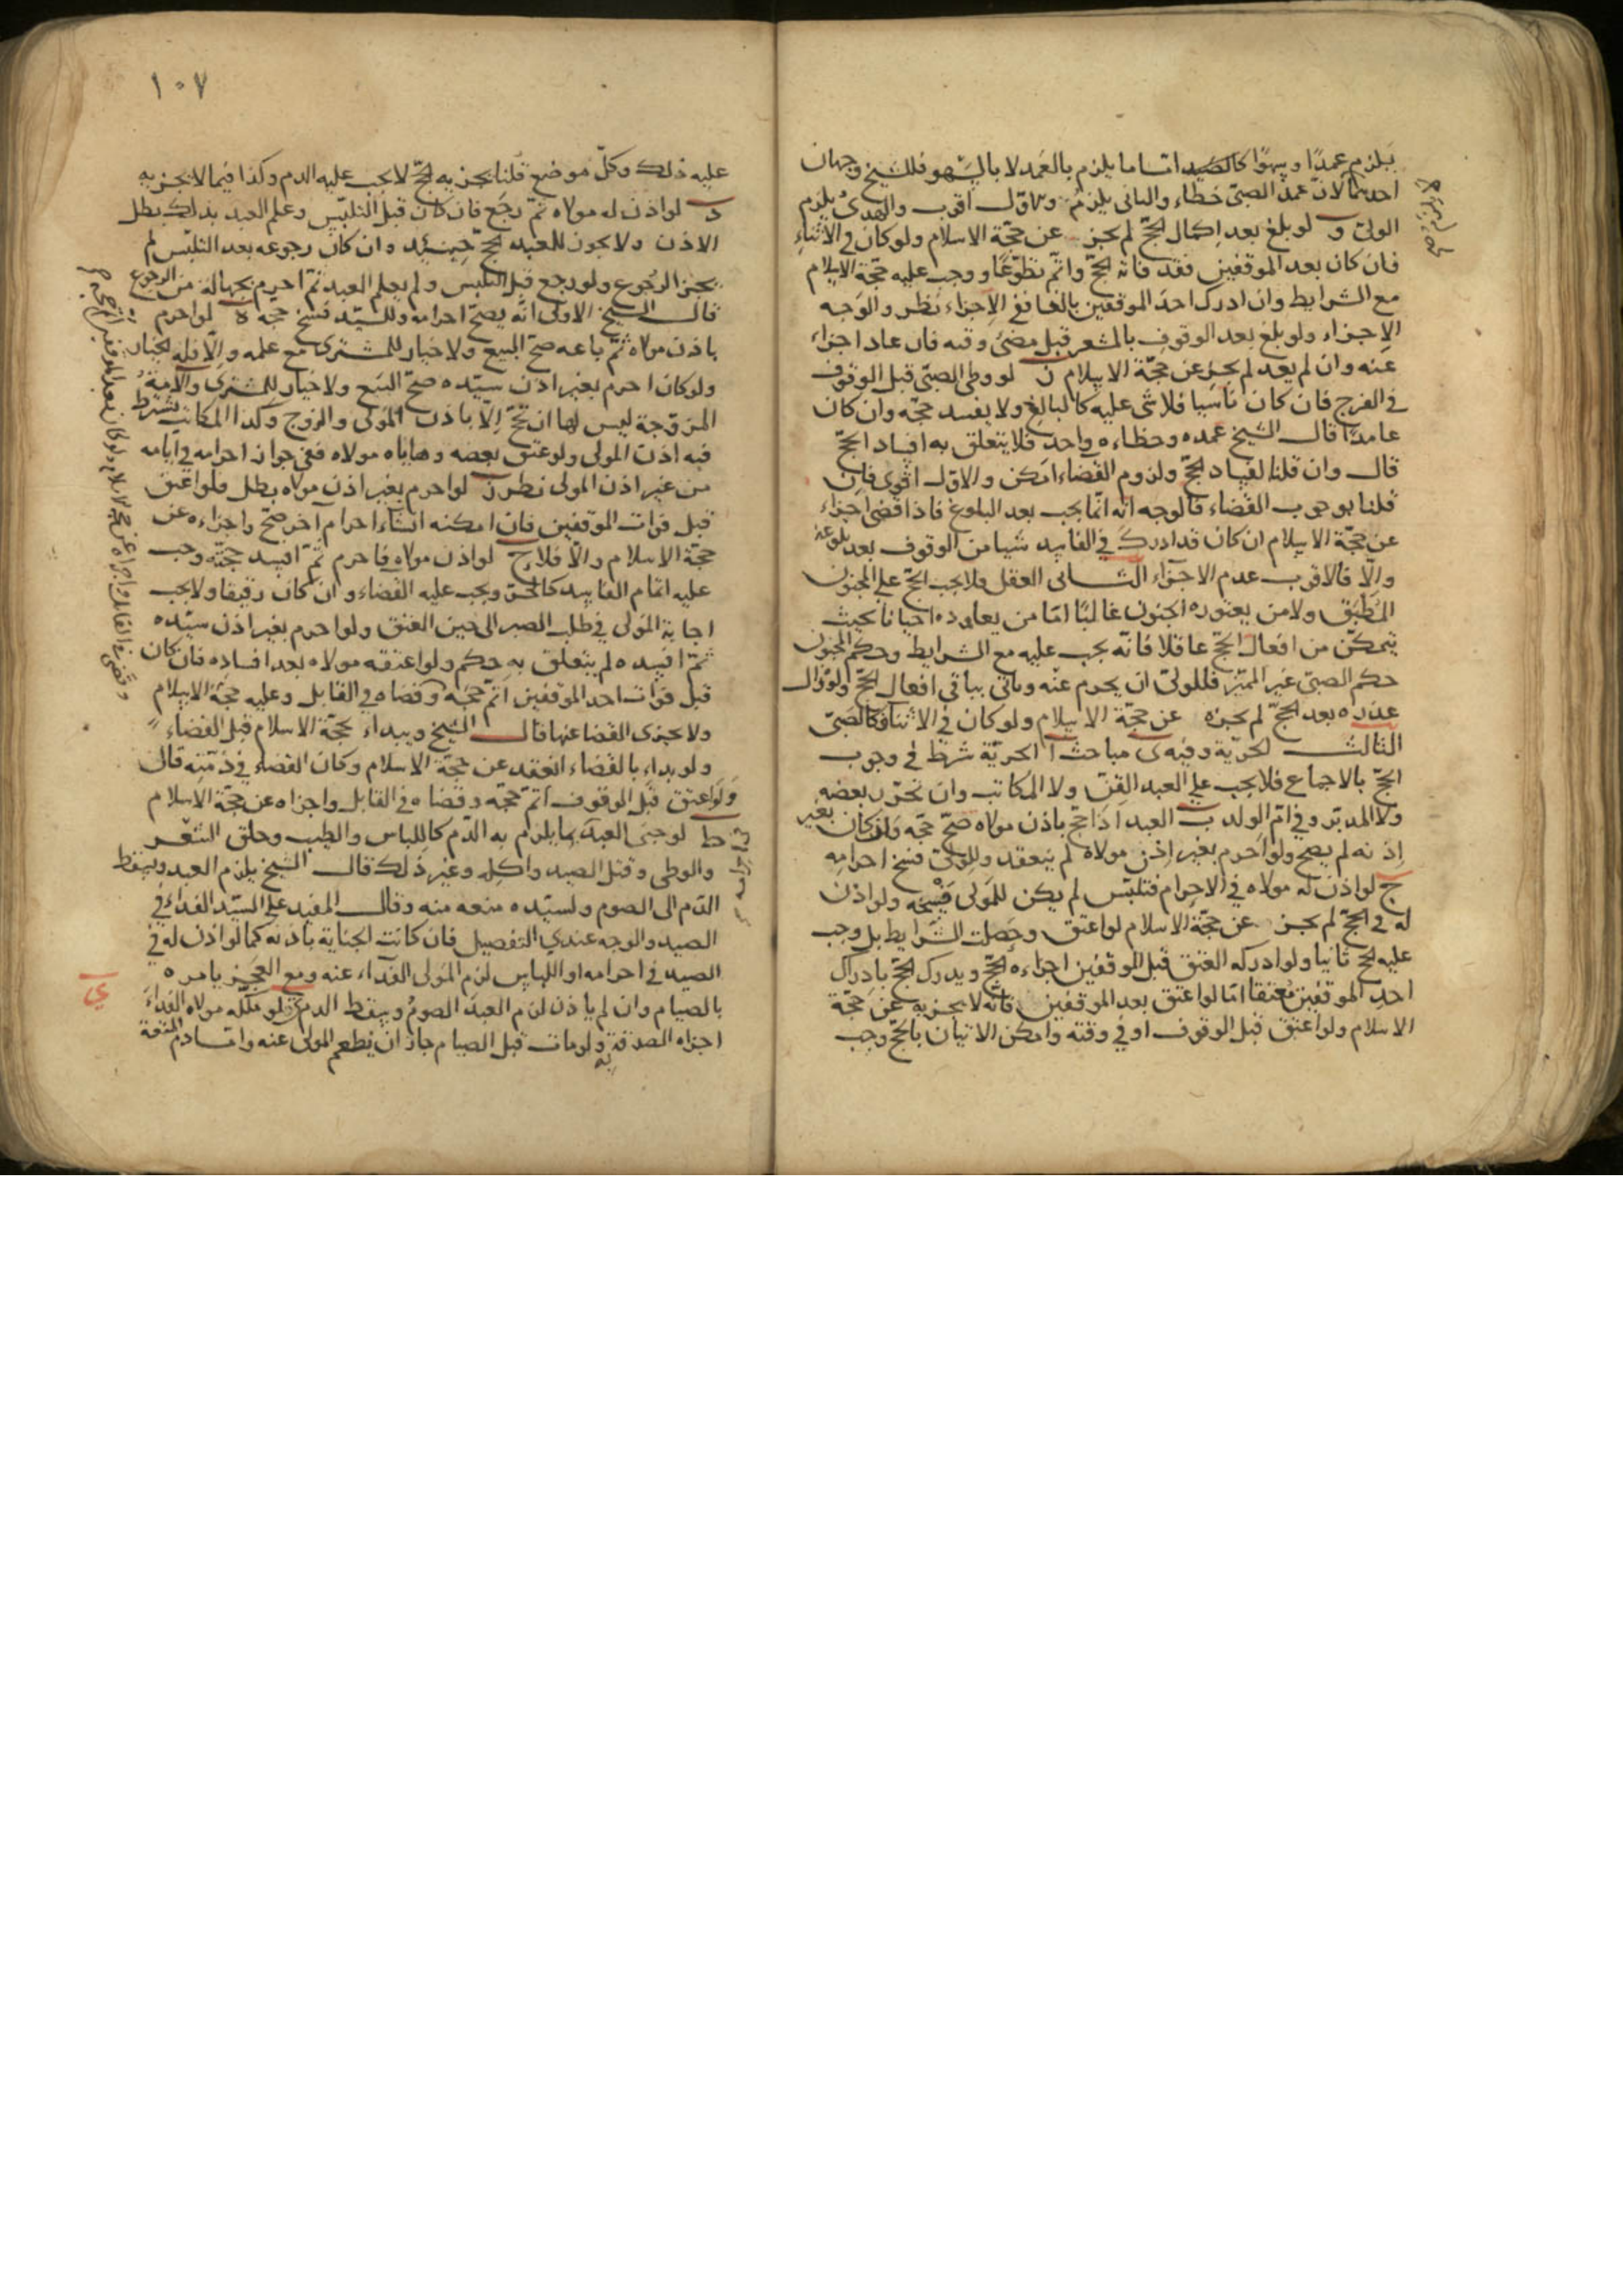 يلزم عمدًا وسهوًا كالصيد امّا ما يلزم بالعمد لا بالسهو فللشيخ وجهان
احدهما لانّ عمد الصبىّ خطاء والثانى يلزم والاوّل اقرب والهدىُ يلزم
الولىّ و لو بلغ بعد اكمال الحجّ لم يجز عن حجّة الاسلام ولو كان فى الاثناء
فان كان بعد الموقفين فقد فاته الحجّ واتمّ تطوّعًا ووجب عليه حجّة الاسلام
مع الشرايط وان ادرك احد الموقفين بالغا ففى الاجزاء نظر والوجه
الاجزاء ولو بلغ بعد الوقوف بالمشعر قبل مضىّ وقته فان عاد اجزاء
عنه وان لم يعد لم يجز عن حجّة الاسلام ز لو وطى الصبىّ قبل الوقوف
فى الفرج فان كان ناسيا فلا شى عليه كالبالغ ولا يفسد حجّه وان كان
عامدًا قال الشيخ عمده وخطاءه واحد فلا يتعلق به افساد الحجّ
قال وان قلنا لفساد الحجّ ولزوم القضاء امكن والاول اقوى فان
قلنا بوجوب القضاء فالوجه انّه انّما يجب بعد البلوغ فاذا قضى اجزاء
عن حجّة الاسلام ان كان قد ادرك فى الفاسد شيا من الوقوف بعد بلوغه
والّا فالاقرب عدم الاجزاء الثانى العقل فلا يجب الحجّ على المجنون
المطبق ولا من يعتوره الجنون غالبًا امّا من يعاوده احيانا بحيث
يتمكّن من افعال الحجّ عاقلا فانّه يجب عليه مع الشرايط وحكم المجنون
حكم الصبىّ غير المميّز فللولىّ ان يحرم عنه وياتى بباقى افعال الحجّ ولو زال
عذره بعد الحجّ لم يجزه عن حجّة الاسلام ولو كان فى الاثناء فكالصبىّ
الثالث الحريّة وفيه ى مباحث ا الحريّة شرط فى وجوب
الحجّ بالاجماع فلا يجب على العبد القنّ ولا المكاتب وان تحرّر بعضه
ولا المدبّر وفى امّ الولد ب العبد اذا حجّ باذن مولاه صحّ حجّه وان كان بغير
اذنه لم يصح ولو احرم بغير اذن مولاه لم ينعقد وللمولى فسخ احرامه
ج لو اذن له مولاه فى الاحرام فتلبّس لم يكن للمولى فسخه ولو اذن
له فى الحجّ لم يجز عن حجّة الاسلام لو اعتق وحصلت الشّرايط بل وجب
عليه الحجّ ثانيا ولو ادركه العتق قبل الموقفين اجزاءه الحجّ ويدرك الحجّ بادراك
احد الموقفين معتقا امّا لو اعتق بعد الموقفين فانّه لا يجزيه عن حجّة
الاسلام ولو اعتق قبل الوقوف او فى وقته وامكن الاتيان بالحجّ وجب
١٠٧
عليه ذلك وكلّ موضع قلنا يجزيه الحجّ لا يجب عليه الدم وكذا فيما لا يجزيه
د لو اذن له مولاه ثمّ رجع فان كان قبل التلبّس وعلم العبد بذلك بطل
الاذن ولا يجوز للعبد الحجّ حينئد وان كان رجوعه بعد التلبّس لم
يجز الرجوع ولو رجع قبل التلبّس ولم يعلم العبد ثمّ احرم بجهالة من الرجوع
قال الشيخ الاولى انّه يصحّ احرامه وللسّيد فسخ حجّه ه لو احرم
باذن مولاه ثمّ باعه صحّ البيع ولا خيار للمشترى مع علمه والّا فله الخيار
ولو كان احرم بغير اذن سيّده صحّ البيع ولا خيار للمشترى والامة
المزوّجة ليس لها ان تحجّ الّا باذن المولى والزوج وكذا المكاتب يشترط
فيه اذن المولى ولو عتق بعضه وهاياه مولاه ففى جواز احرامه فى ايّامه
من غير اذن المولى نظر ز لو احرم بغير اذن مولاه بطل فلو اعتق
قبل فوات الموقفين فان امكنه انشاء احرام آخر صحّ واجزاءه عن
حجّة الاسلام والّا فلا ح لو اذن مولاه فاحرم ثمّ افسد حجّه وجب
عليه اتمام الفاسد كالحرّ ويجب عليه القضاء وان كان رقيقا ولا يجب
اجابة المولى فى طلب الصبر الى حين العتق ولو احرم بغير اذن سيّده
ثمّ افسده لم يتعلق به حكم ولو اعتقه مولاه بعد افساده فان كان
قبل فوات احد الموقفين اتمّ حجّه وقضاه فى القابل وعليه حجّة الاسلام
ولا يجزى القضا عنها قال الشيخ ويبداء بحجّة الاسلام قبل القضاء
ولو بداء بالقضاء انعقد عن حجّة الاسلام وكان القضاء فى ذمّته قال
ولو اعتق قبل الوقوف اتمّ حجّه وقضاه فى القابل واجزاه عن حجّة الاسلام
ط لو جنى العبد بما يلزم به الدّم كاللباس والطيب وحلق الشعر
والوطى وقتل الصيد واكله وغير ذلك قال الشيخ يلزم العبد ويسقط
الدّم الى الصوم ولسيّده منعه منه وقال المفيد على السيّد الفداء فى
الصيد والوجه عندى التفصيل فان كانت الجناية باذنه كما لو اذن له فى
الصيد فى احرامه او اللباس لزم المولى الفداء عنه ومع العجز يامره
بالصيام وان لم ياذن لزم العبد الصوم ويسقط الدم ولو ملّكه مولاه الفداء
ي
اجزاه الصدقة به ولو مات قبل الصيام جاز ان يطعم المولى عنه وامّا دم المتعة
ولو كان بعد الموقفين اتمّ حجّه
وقضى فى القابل واجزاه عن حجّة الاسلام